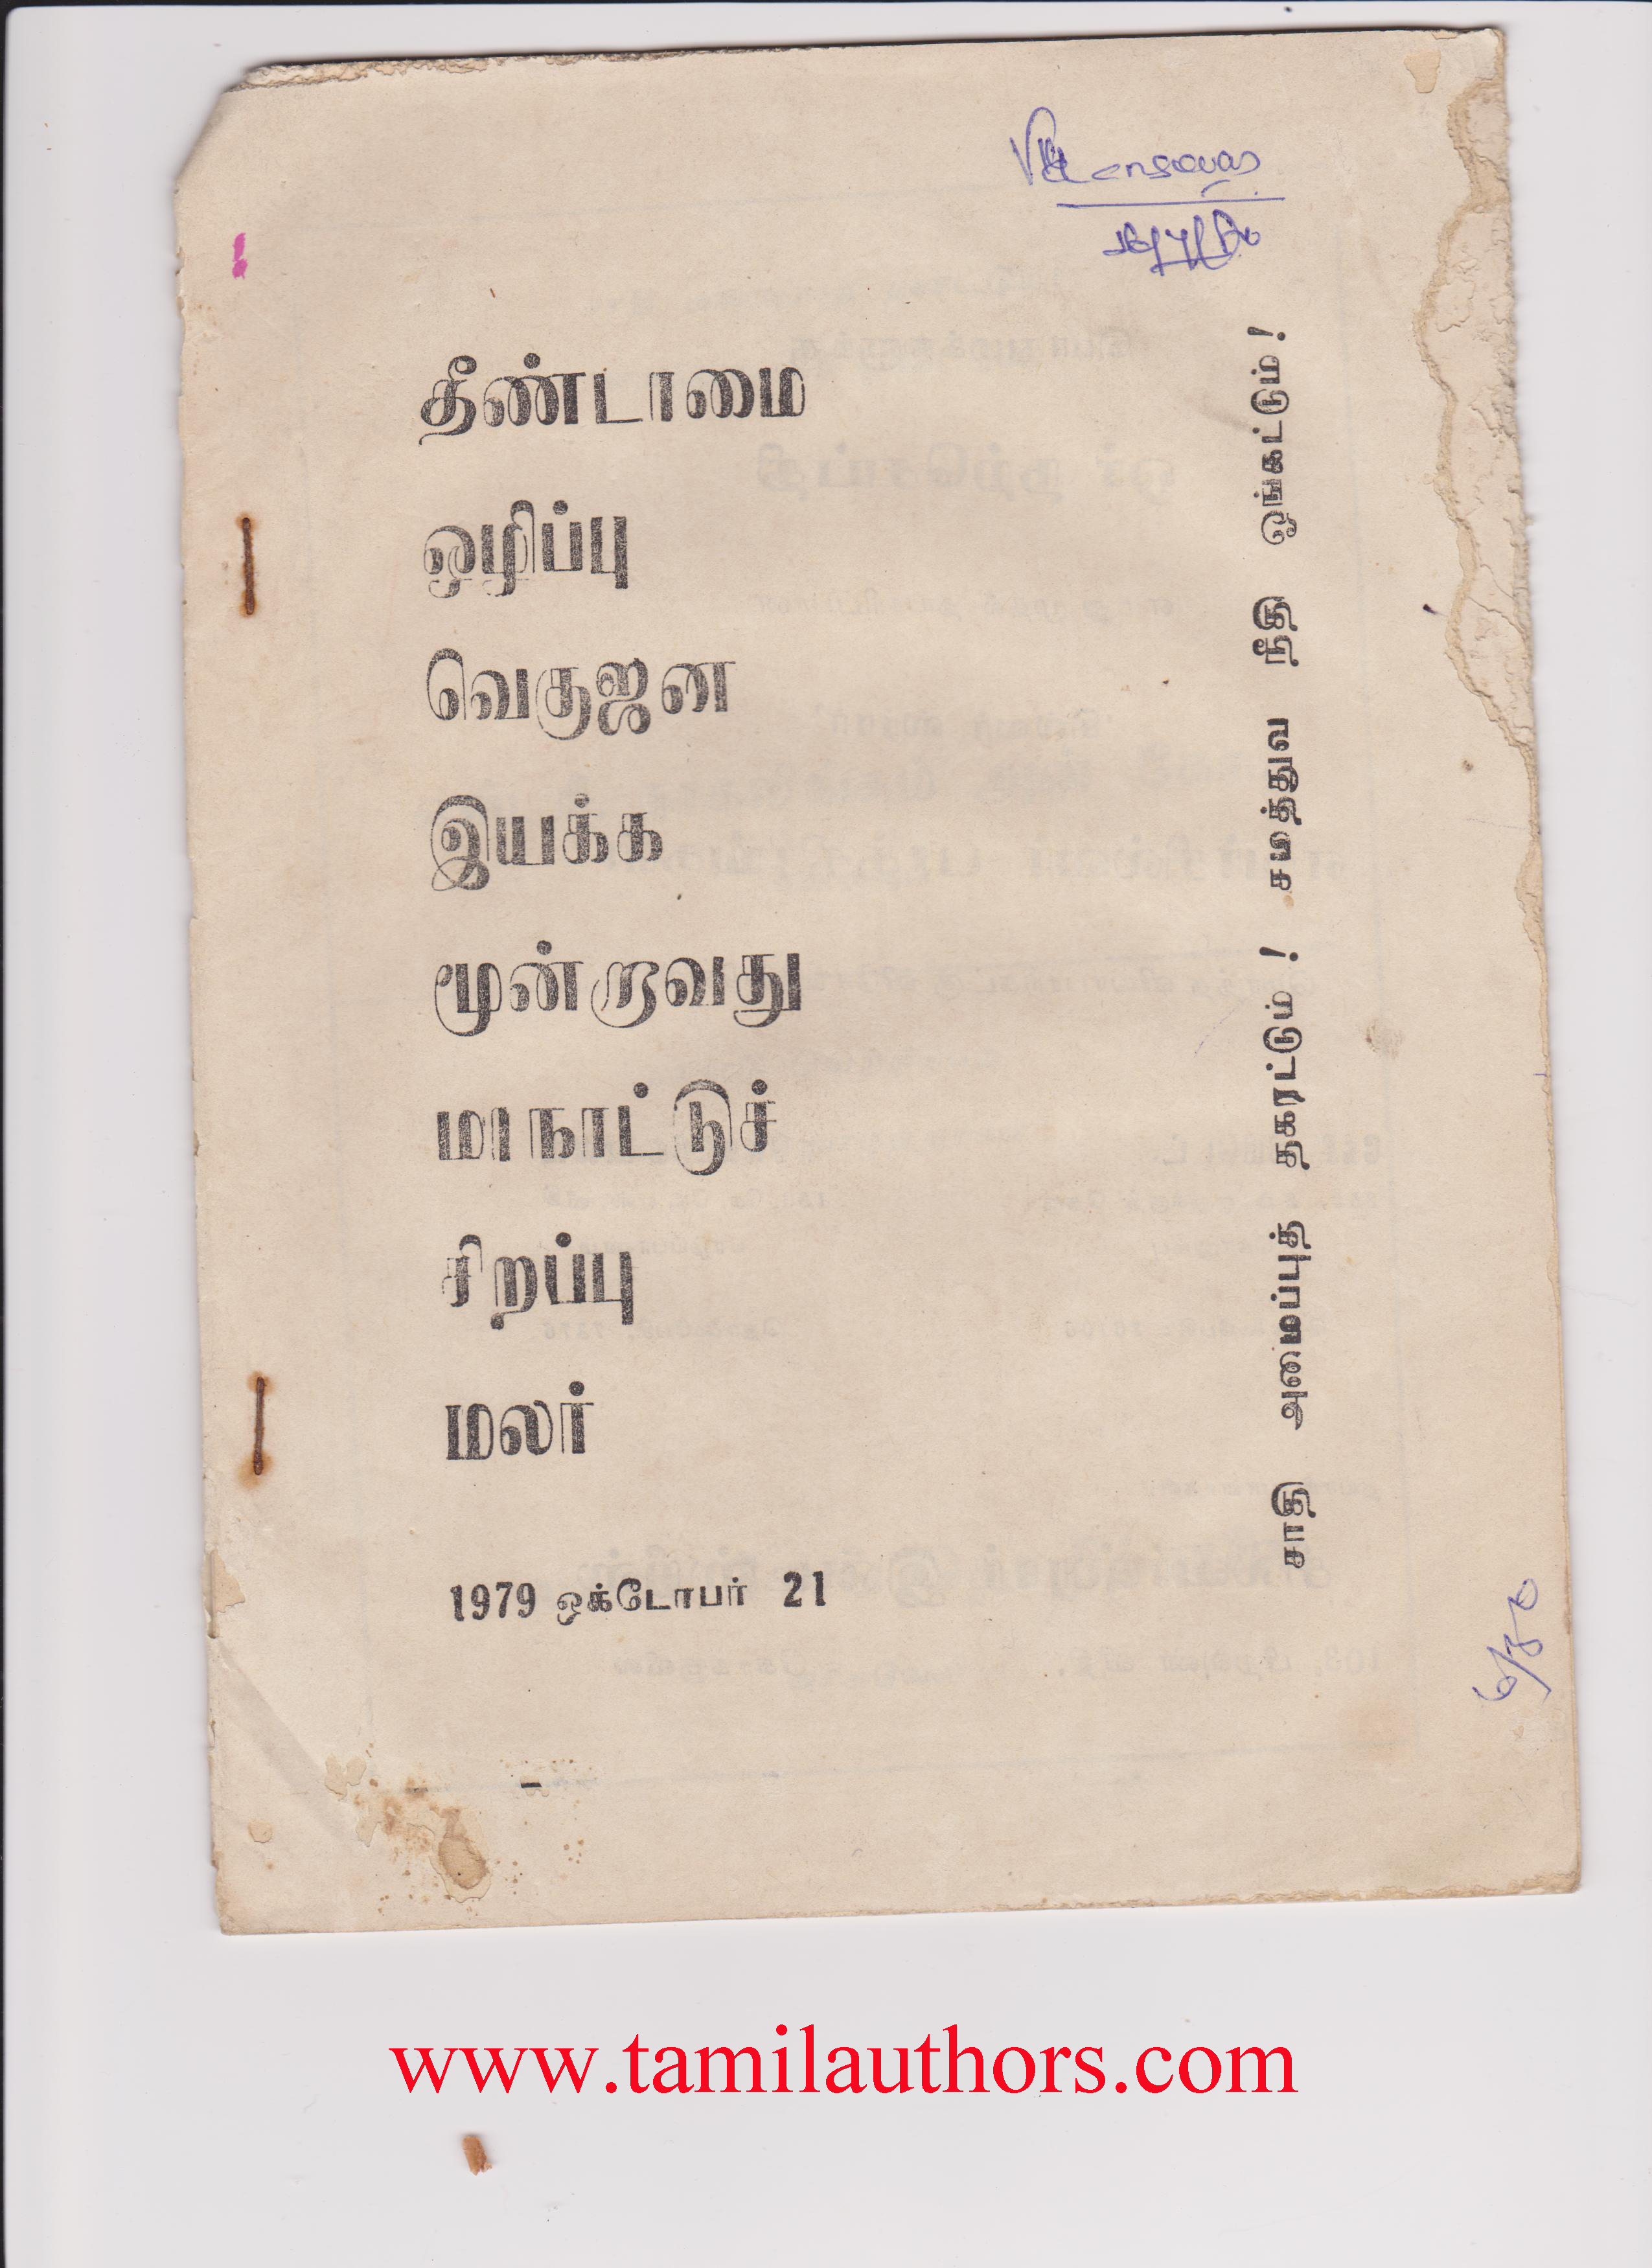 தீண்டாமை
ஒழிப்பு
வெகுஜன
இயக்க
மூன்றாவது
மாநாட்டுச்
சிறப்பு
மலர்
1979 ஒக்டோபர் 21
சாதி அமைப்புத் தகரட்டும் ! சமத்துவ நீதி ஓங்கட்டும் !
6/80
www.tamilauthors.com